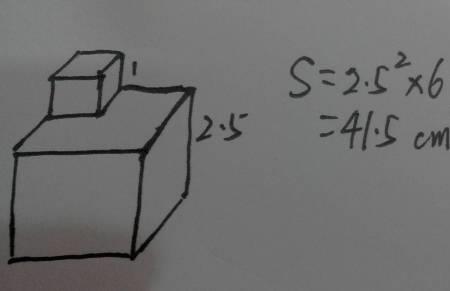 1
2.5
S=2.5²×6
=41.5 cm